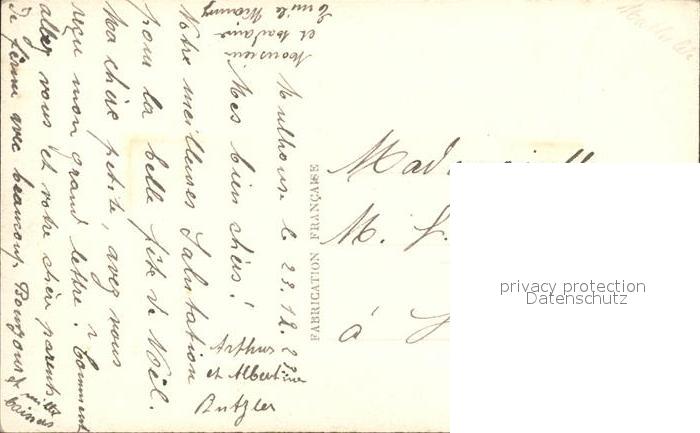 Mulhouse le 23.12.
Mes bien chers!
Notre meilleures Salutation
pour la belle fête de Noël.
Ma chère petite, avez vous
reçu mon grand lettre? Comment
allez vous et votre chère parents
Je ferme avec beaucoup Bonjours et mille baisers
Arthur
et Albertine
Butzler
Monsieur
et Madame
Emile
FABRICATION FRANÇAISE
M.
à
privacy protection
Datenschutz